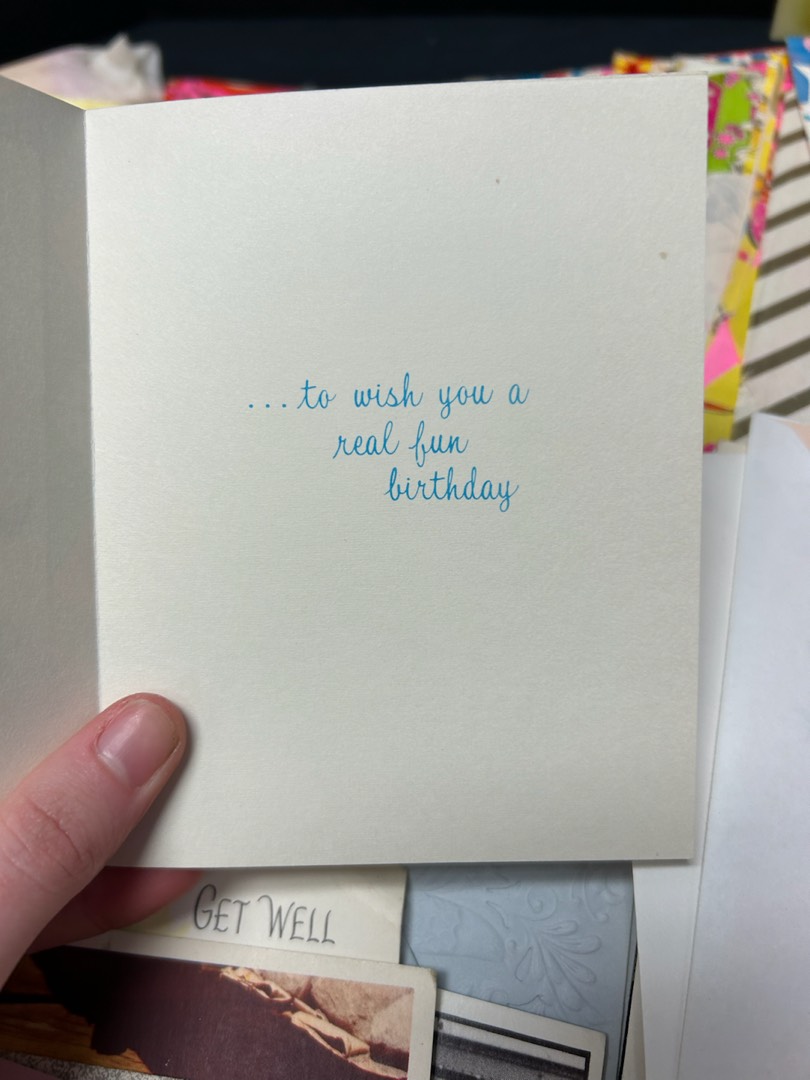 ...to wish you a
real fun
birthday
GET WELL